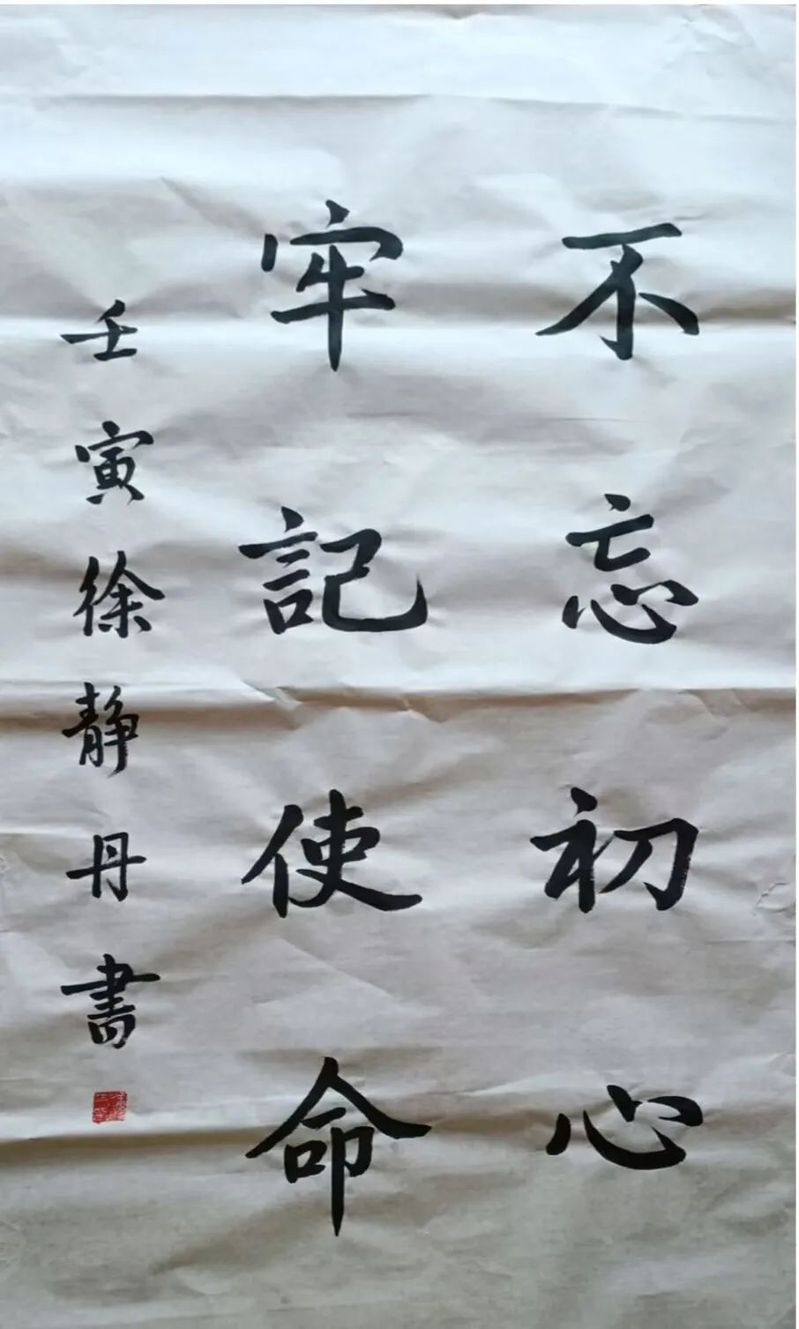 不忘初心
牢記使命
壬寅徐静丹書